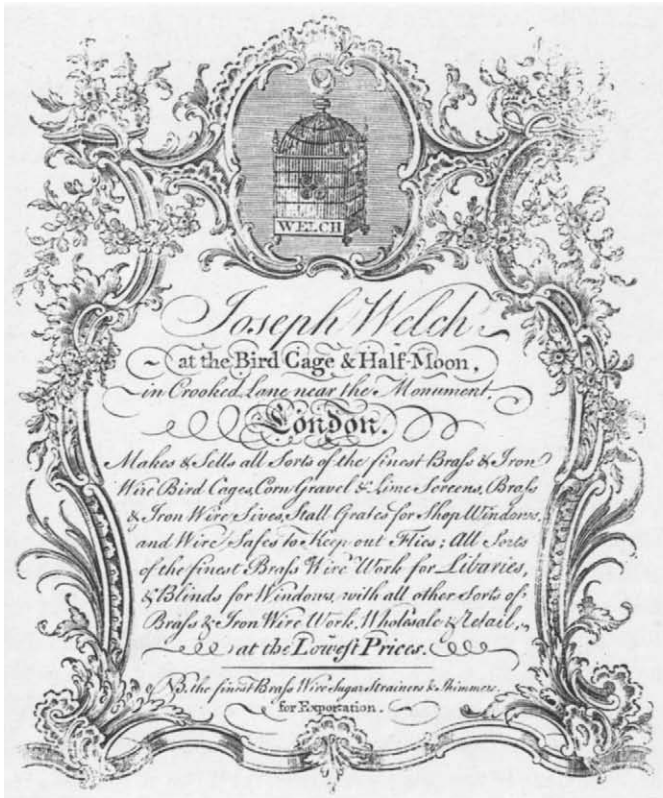 WELCH
Joseph Welch
at the Bird Cage & Half-Moon,
in Crooked Lane near the Monument.
London.
Makes & Sells all Sorts of the finest Braſs & Iron
Wire Bird Cages, Corn Gravel & Lime Screens, Braſs
& Iron Wire Sives, Stall Grates for Shop Windows,
and Wire Safes to Keep out Flies; All Sorts
of the finest Braſs Wire Work for Libaries,
& Blinds for Windows, with all other Sorts of
Braſs & Iron Wire Work, Wholesale & Retail,
at the Loweſt Prices.
NB. the finest Braſs Wire Sugar Strainers & Skimmers
for Exportation.